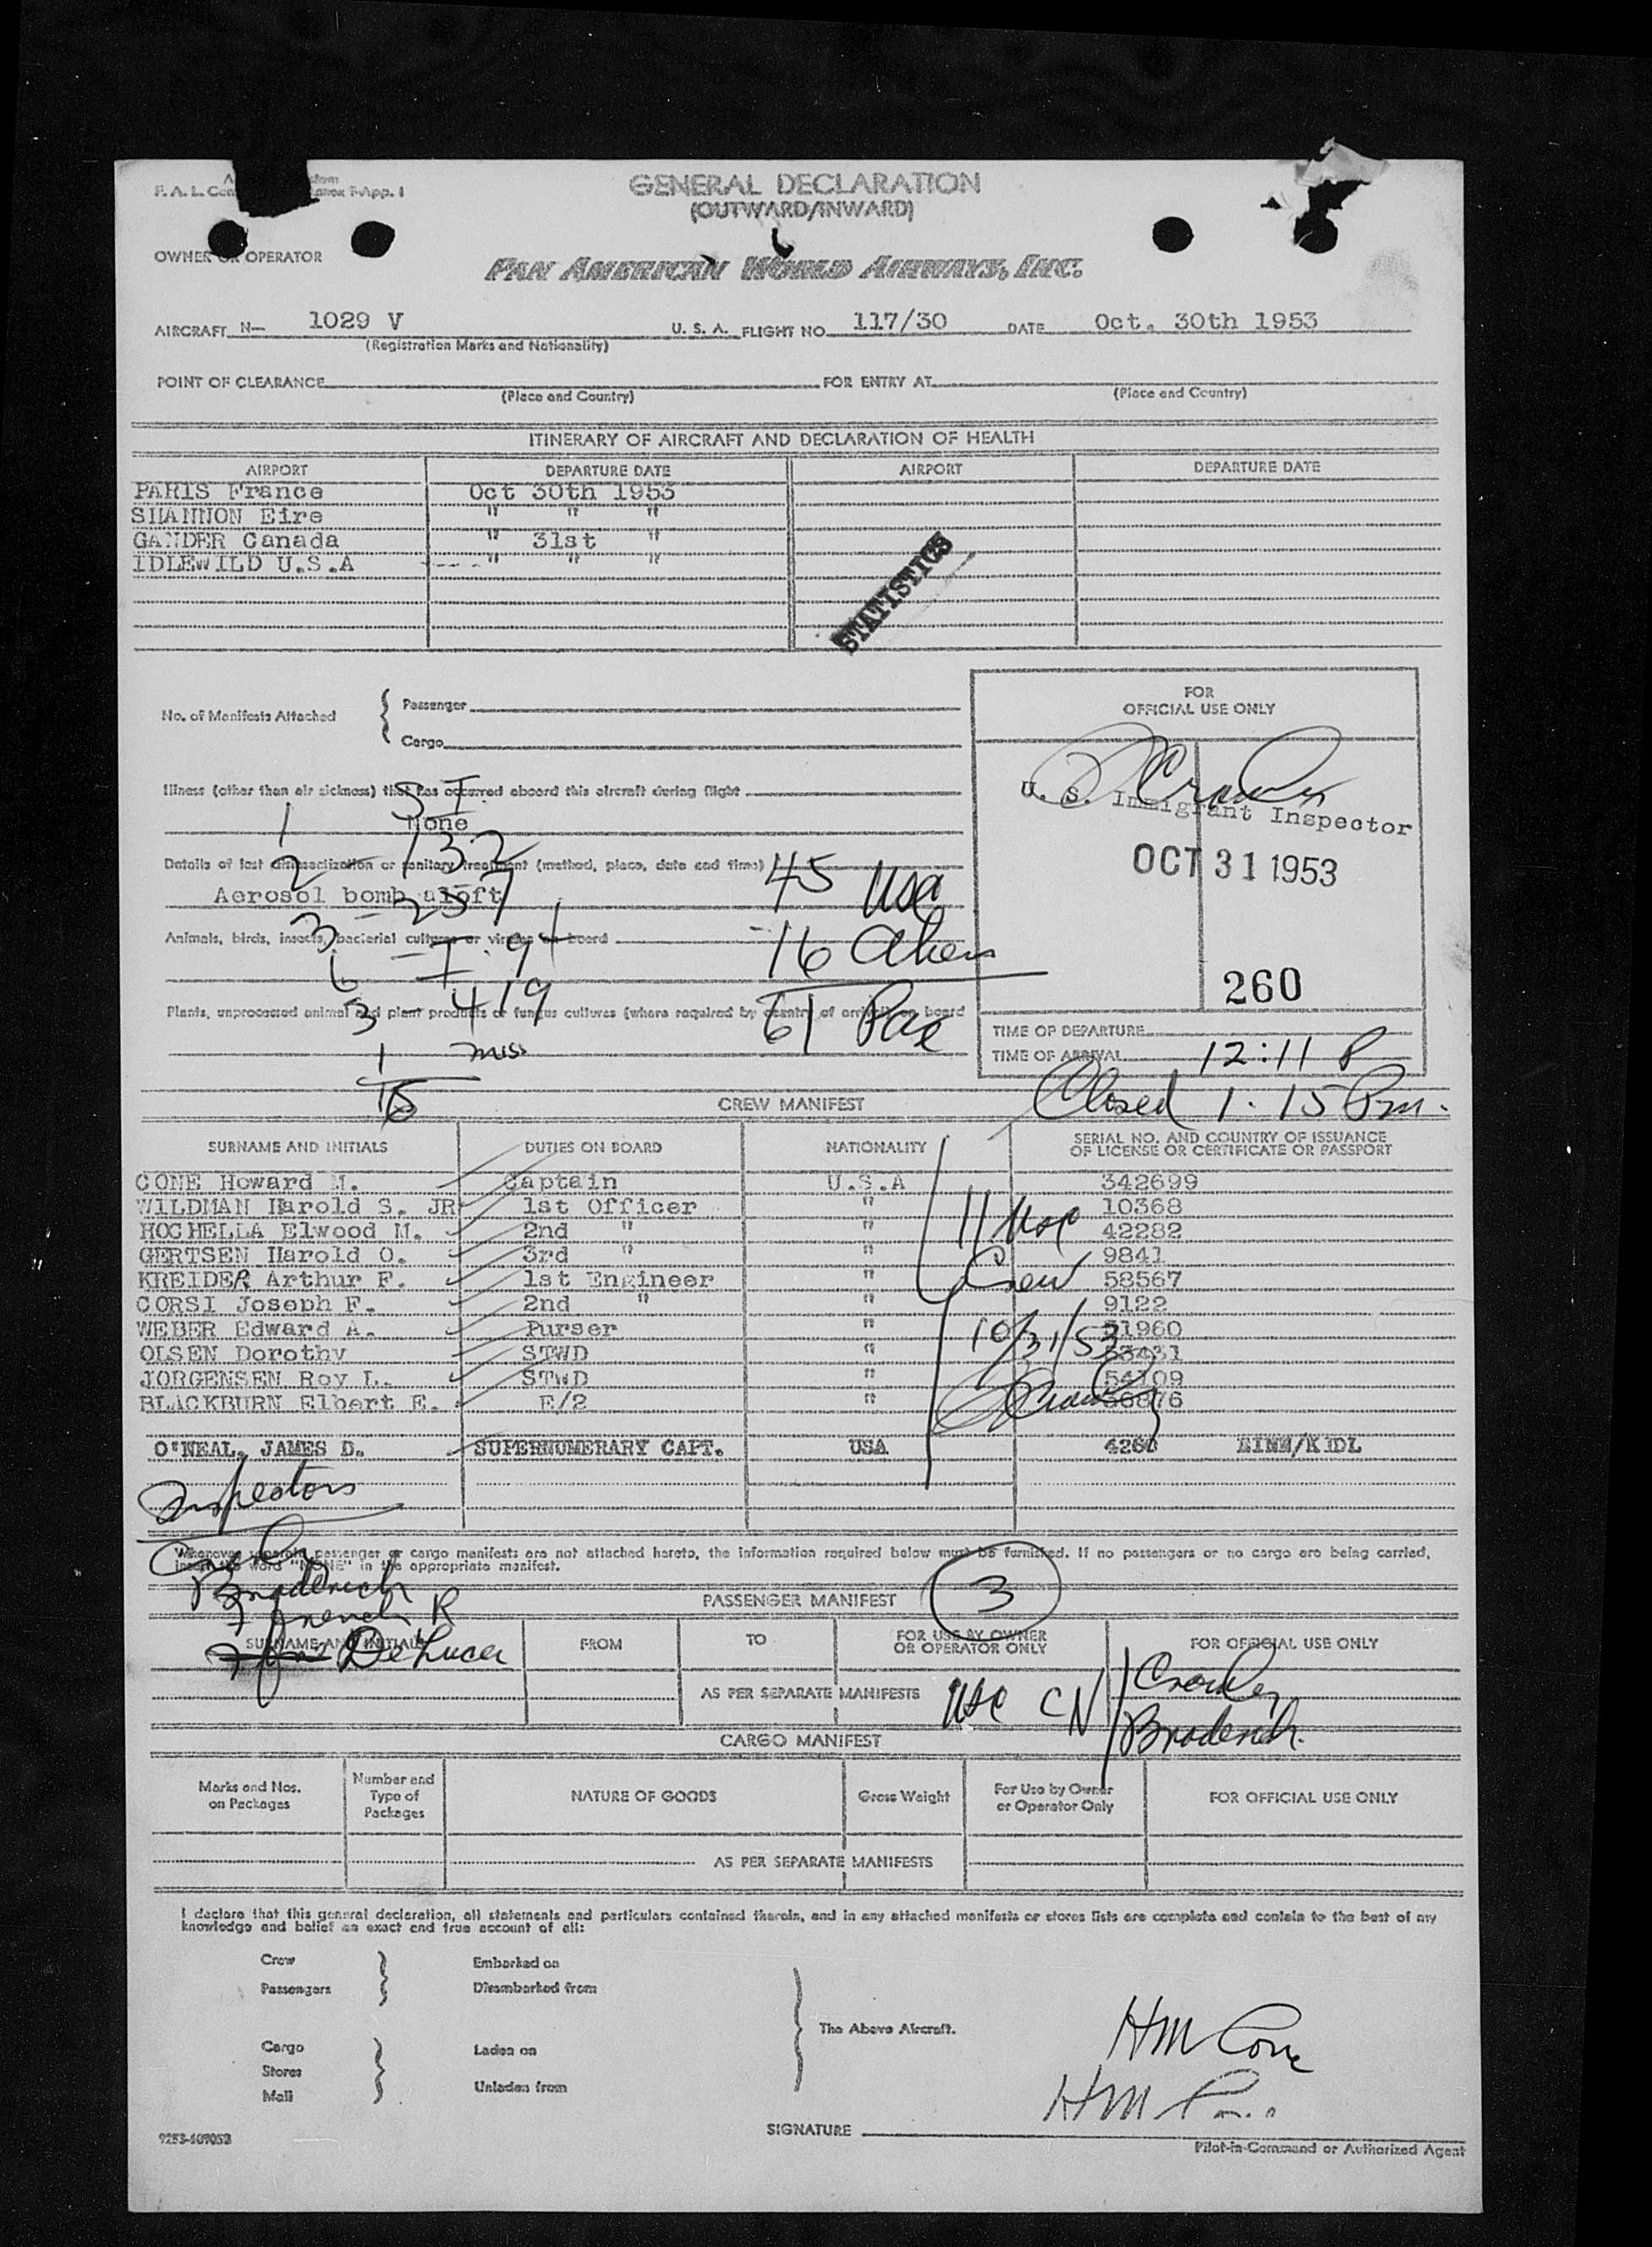 GENERAL DECLARATION
(OUTWARD/INWARD)
OWNER OR OPERATOR
PAN AMERICAN WORLD AIRWAYS, INC.
AIRCRAFT N— 1029 V U. S. A. FLIGHT NO. 117/30 DATE Oct. 30th 1953
(Registration Marks and Nationality)
POINT OF CLEARANCE FOR ENTRY AT
(Place and Country) (Place and Country)
ITINERARY OF AIRCRAFT AND DECLARATION OF HEALTH
AIRPORT DEPARTURE DATE AIRPORT DEPARTURE DATE
PARIS France Oct 30th 1953
SHANNON Eire " " "
GANDER Canada " 31st "
IDLEWILD U.S.A ---- " " "
STATISTICS
No. of Manifests Attached { Passenger
Cargo
FOR
OFFICIAL USE ONLY
Illness (other than air sickness) that has occurred aboard this aircraft during flight
None
U. S. Immigrant Inspector
OCT 31 1953
Details of last disinsectization or sanitary treatment (method, place, date and time)
Aerosol bomb aloft
45 USC
Animals, birds, insects, bacterial cultures or viruses on board
16 Aliens
260
Plants, unprocessed animal and plant products or fungus cultures (where required by country of arrival) on board
61 Pax
TIME OF DEPARTURE
TIME OF ARRIVAL 12:11 P
Closed 1.15 Pm.
CREW MANIFEST
SURNAME AND INITIALS DUTIES ON BOARD NATIONALITY SERIAL NO. AND COUNTRY OF ISSUANCE OF LICENSE OR CERTIFICATE OR PASSPORT
CONE Howard M. Captain U.S.A 342699
WILDMAN Harold S. JR 1st Officer " 10368
HOCHELLA Elwood M. 2nd " " 42282
GERTSEN Harold O. 3rd " " 9841
KREIDER Arthur F. 1st Engineer " 58567
CORSI Joseph F. 2nd " " 9122
WEBER Edward A. Purser " 51960
OLSEN Dorothy STWD " 53431
JORGENSEN Roy L. STWD " 54109
BLACKBURN Elbert E. E/2 "
11 USC
Crew
10/31/53
O'NEAL, JAMES D. SUPERNUMERARY CAPT. USA 4260 EINN/KIDL
Inspectors
Crowley
Broderick
French R
DeLucca
Whenever separate passenger or cargo manifests are not attached hereto, the information required below must be furnished. If no passengers or no cargo are being carried,
insert the word "NONE" in the appropriate manifest.
PASSENGER MANIFEST
3
SURNAME AND INITIALS FROM TO FOR USE BY OWNER OR OPERATOR ONLY FOR OFFICIAL USE ONLY
AS PER SEPARATE MANIFESTS
USC CN
Crowley
Broderick
CARGO MANIFEST
Marks and Nos. on Packages Number and Type of Packages NATURE OF GOODS Gross Weight For Use by Owner or Operator Only FOR OFFICIAL USE ONLY
AS PER SEPARATE MANIFESTS
I declare that this general declaration, all statements and particulars contained therein, and in any attached manifests or stores lists are complete and contain to the best of my
knowledge and belief an exact and true account of all:
Crew Embarked on
Passengers Disembarked from
The Above Aircraft.
Cargo Laden on
Stores
Mail Unladen from
HM Cone
SIGNATURE
Pilot-in-Command or Authorized Agent